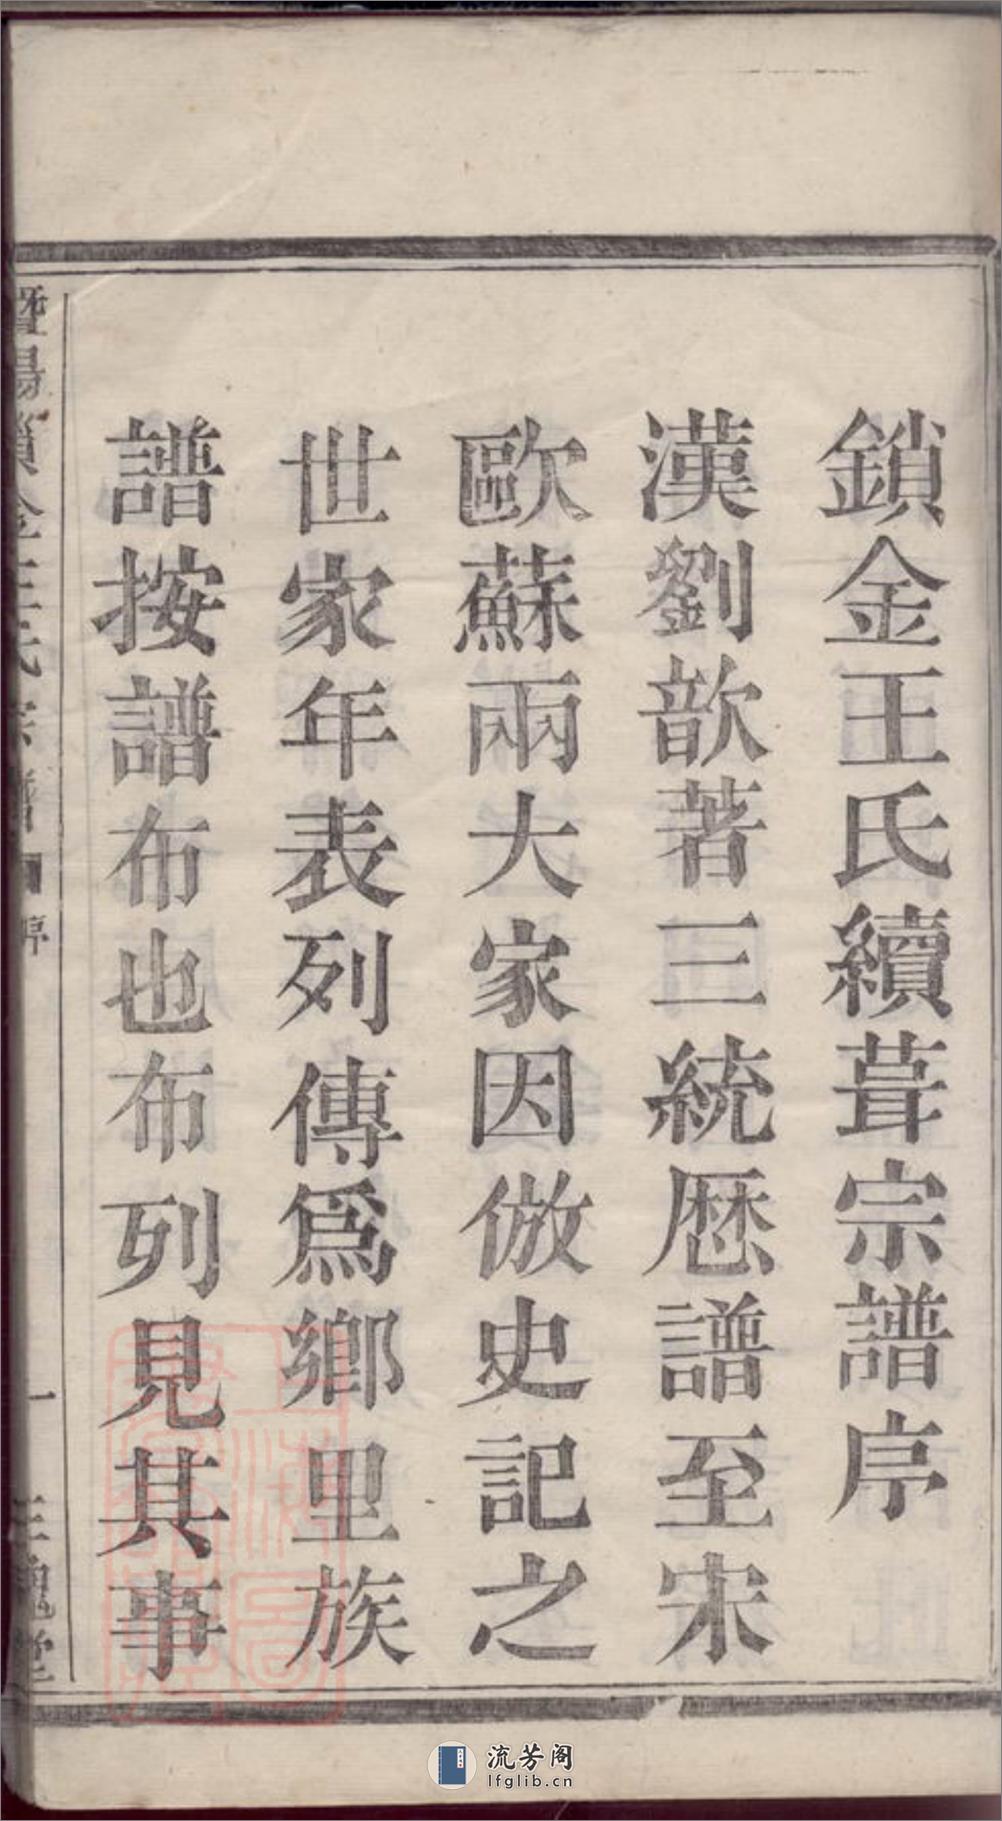 鎖金王氏續葺宗譜序
漢劉歆著三統厯譜至宋
歐蘇兩大家因倣史記之
世家年表列傳爲鄉里族
譜按譜布也布列見其事
暨陽鎖金王氏宗譜
序
一
三槐堂
流芳阁
lfglib.cn